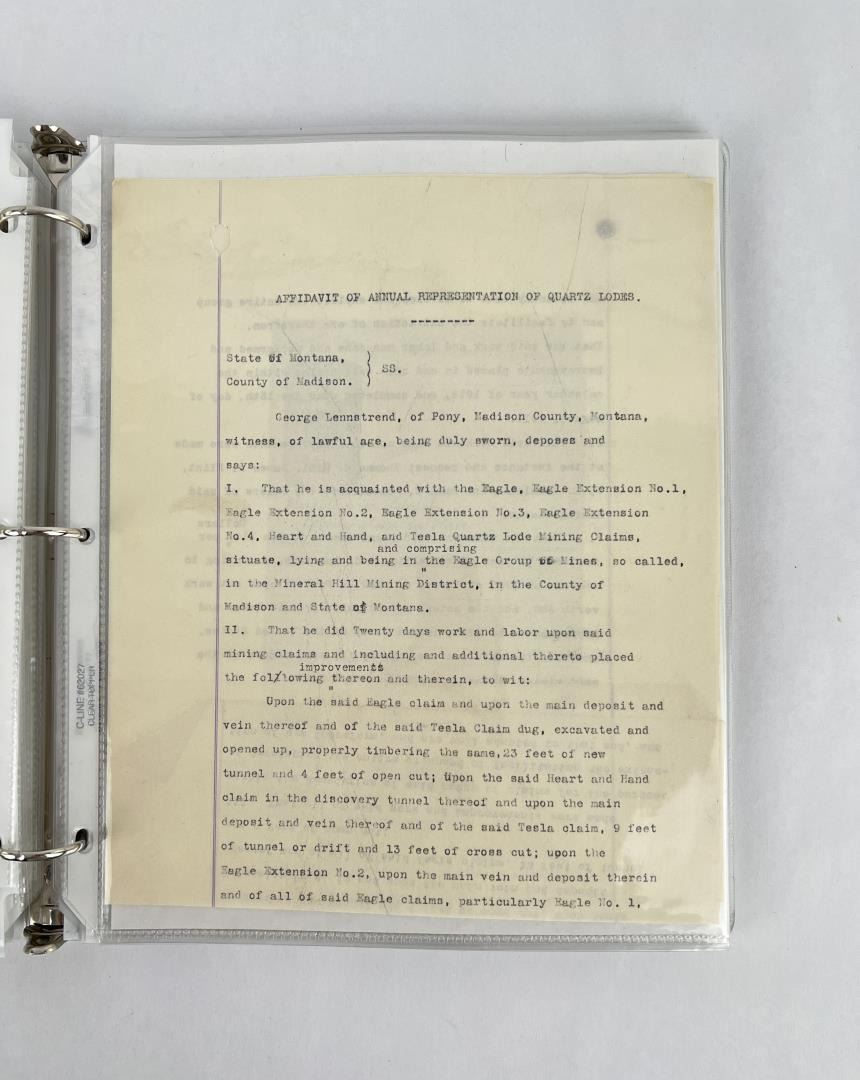 AFFIDAVIT OF ANNUAL REPRESENTATION OF QUARTZ LODES.
---------
State of Montana,
County of Madison.
} SS.
George Lennstrend, of Pony, Madison County, Montana,
witness, of lawful age, being duly sworn, deposes and
says:
I. That he is acquainted with the Eagle, Eagle Extension No.1,
Eagle Extension No.2, Eagle Extension No.3, Eagle Extension
No.4, Heart and Hand, and Tesla Quartz Lode Mining Claims,
and comprising
situate, lying and being in the Eagle Group of Mines, so called,
"
in the Mineral Hill Mining District, in the County of
Madison and State of Montana.
II. That he did Twenty days work and labor upon said
mining claims and including and additional thereto placed
improvements
the following thereon and therein, to wit:
"
Upon the said Eagle claim and upon the main deposit and
vein thereof and of the said Tesla Claim dug, excavated and
opened up, properly timbering the same,23 feet of new
tunnel and 4 feet of open cut; Upon the said Heart and Hand
claim in the discovery tunnel thereof and upon the main
deposit and vein thereof and of the said Tesla claim, 9 feet
of tunnel or drift and 13 feet of cross cut; upon the
Eagle Extension No.2, upon the main vein and deposit therein
and of all of said Eagle claims, particularly Eagle No. 1,
C-LINE #62027
CLEAR TOPPER